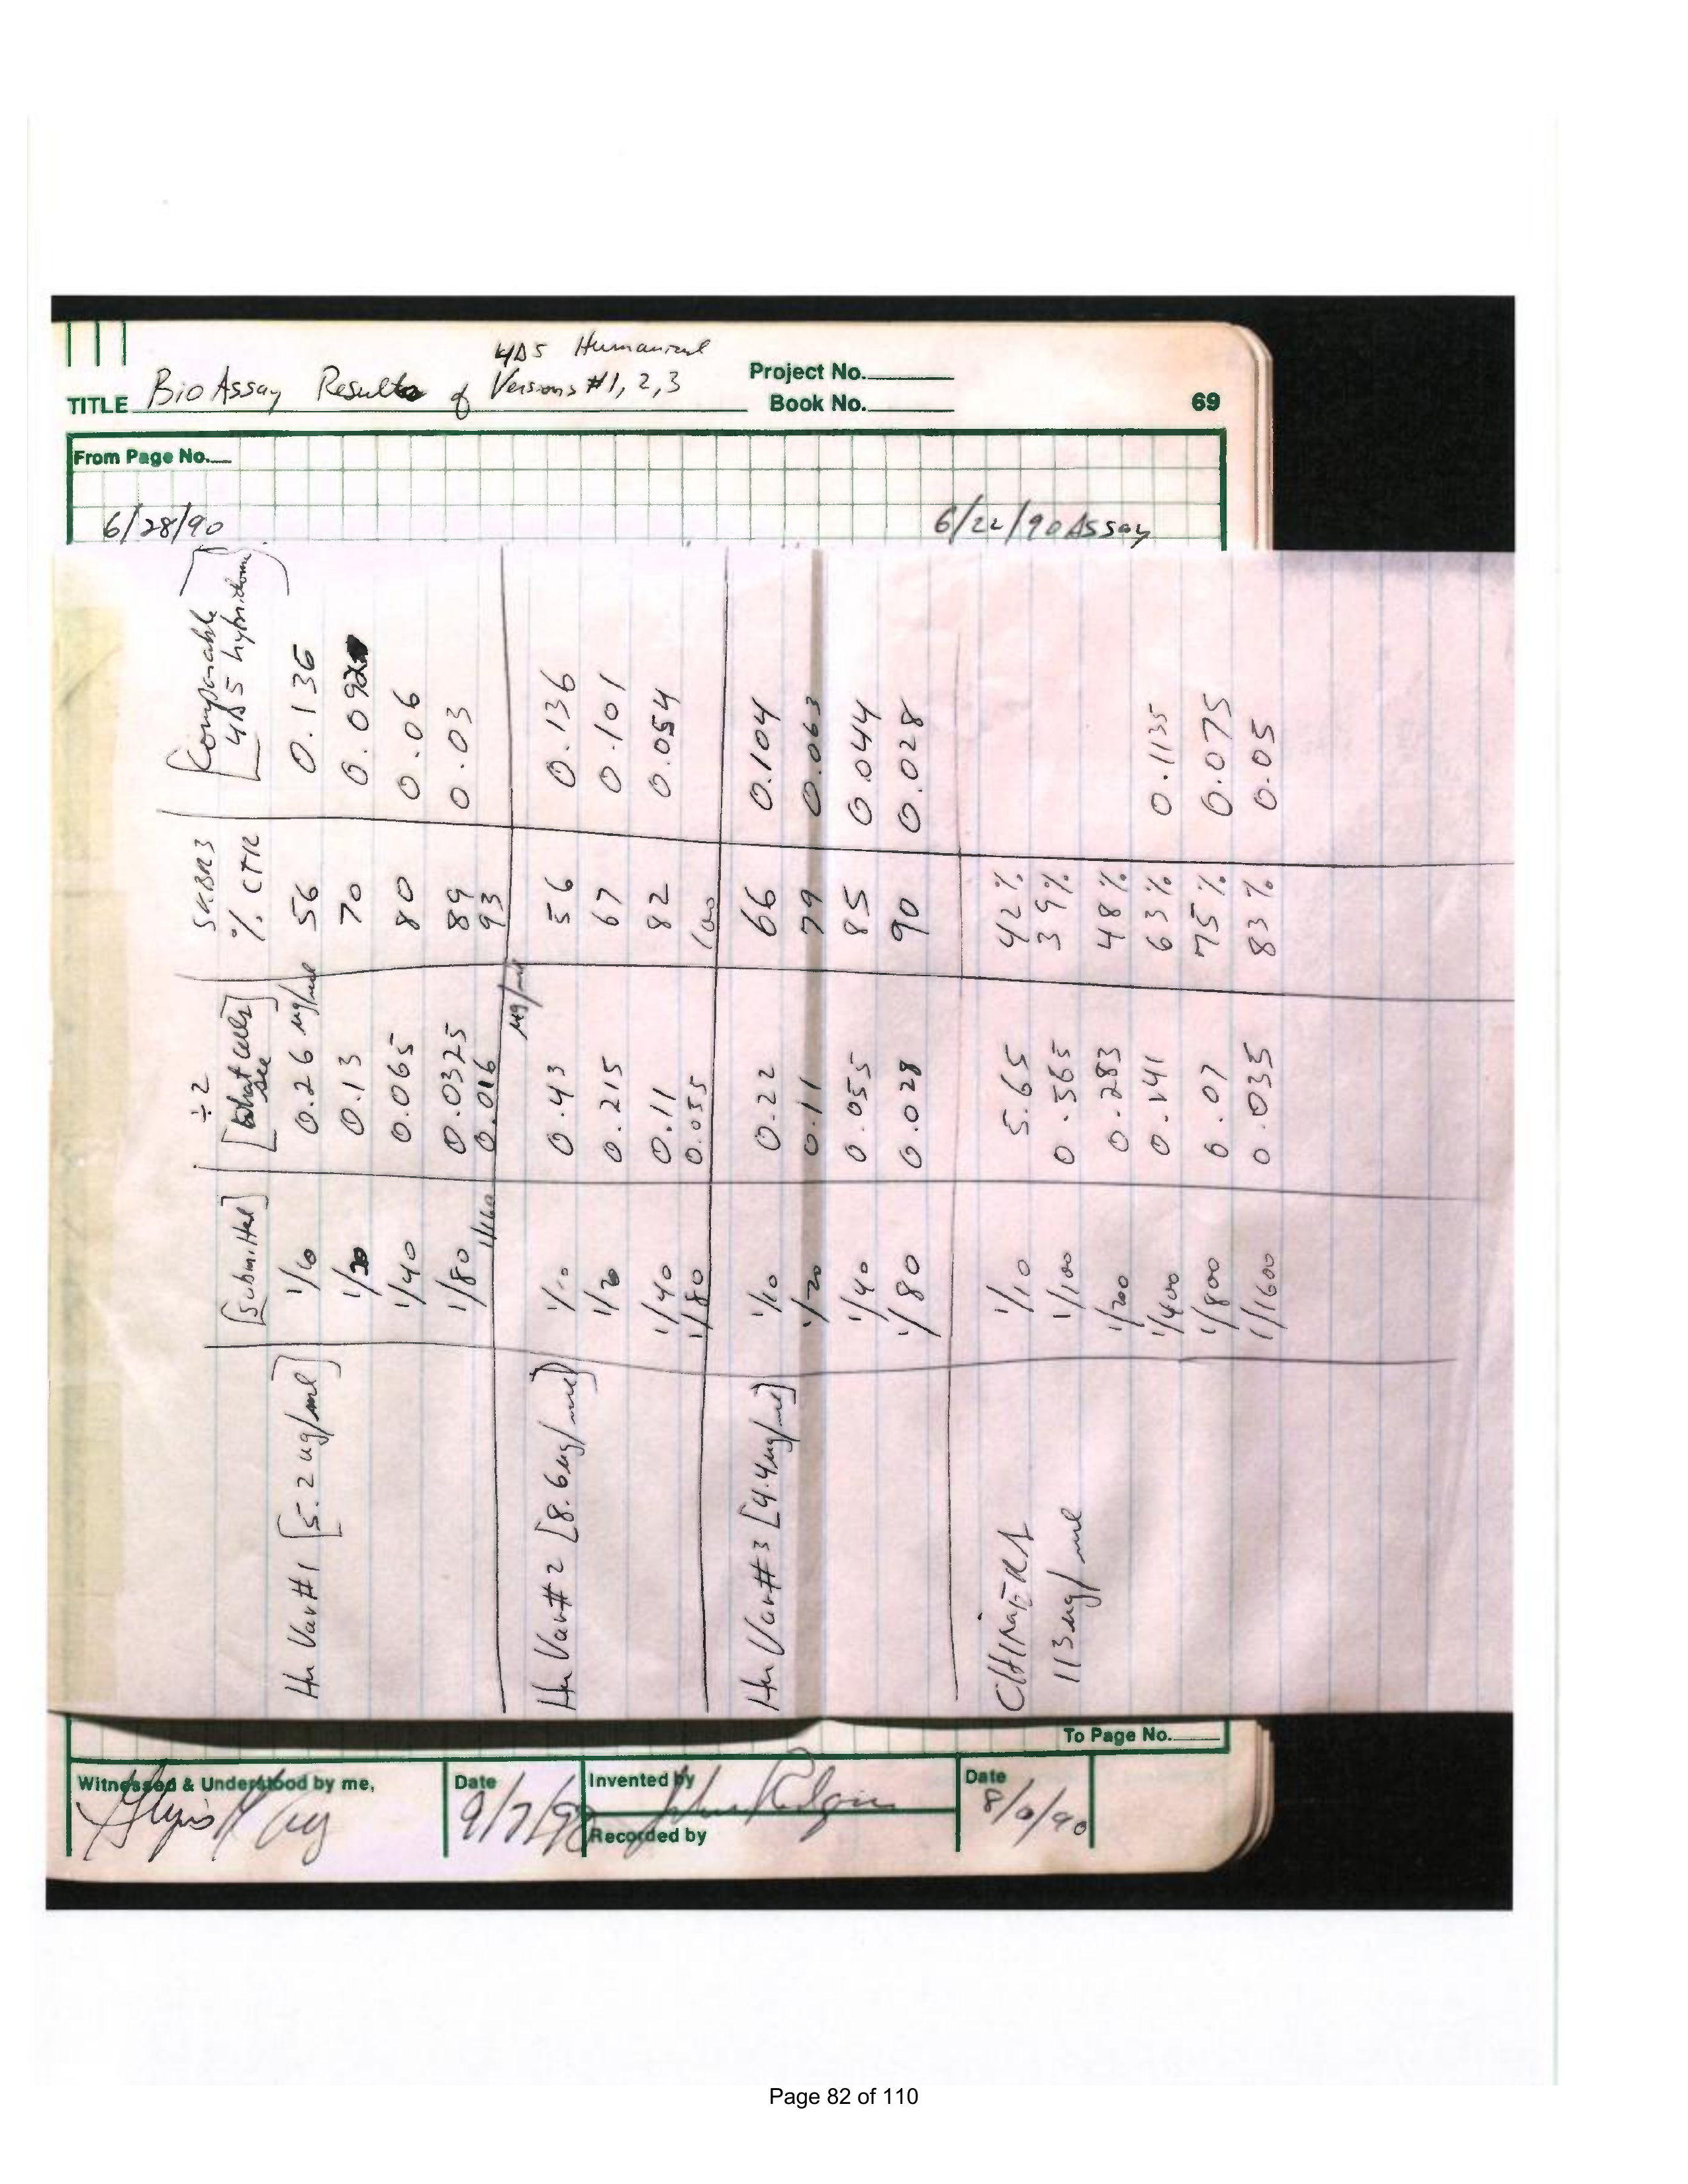 4D5 Humanized
TITLE BioAssay Results of Versions #1, 2, 3
Project No.
Book No.
69
From Page No.
6/28/90 6/22/90 Assay
[Submitted] ÷2 [What cells see] SKBR3 % CTR [Comparable 4D5 hybridoma]
Hu Var #1 [5.2 ug/ml] 1/10 0.26 ug/ml 56 0.136
1/20 0.13 70 0.092
1/40 0.065 80 0.06
1/80 0.0325 89 0.03
1/160 0.016 93
ug/ml
Hu Var #2 [8.6 ug/ml] 1/10 0.43 56 0.136
1/20 0.215 67 0.101
1/40 0.11 82 0.054
1/80 0.055 100
Hu Var #3 [4.4 ug/ml] 1/10 0.22 66 0.104
1/20 0.11 79 0.063
1/40 0.055 85 0.044
1/80 0.028 90 0.028
CHIMERA 1/10 5.65 42%
113 ug/ml 1/100 0.565 39%
1/200 0.283 48%
1/400 0.141 63% 0.1135
1/800 0.07 75% 0.075
1/1600 0.035 83% 0.05
To Page No.
Witnessed & Understood by me,
Date
9/7/90
Invented by
Recorded by
Date
8/6/90
Page 82 of 110